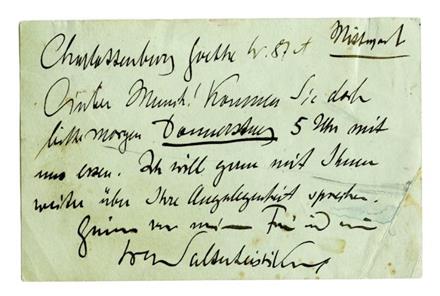 Charlottenburg Goethe str. 87 A Mittwoch
Guter Munch! Kommen Sie doch
bitte morgen Donnerstag 5 Uhr mit
uns essen. Ich will gern mit Ihnen
weiter über Ihre Angelegenheit sprechen.
Grüssen von meiner Frau und mir
Walter Leistikow